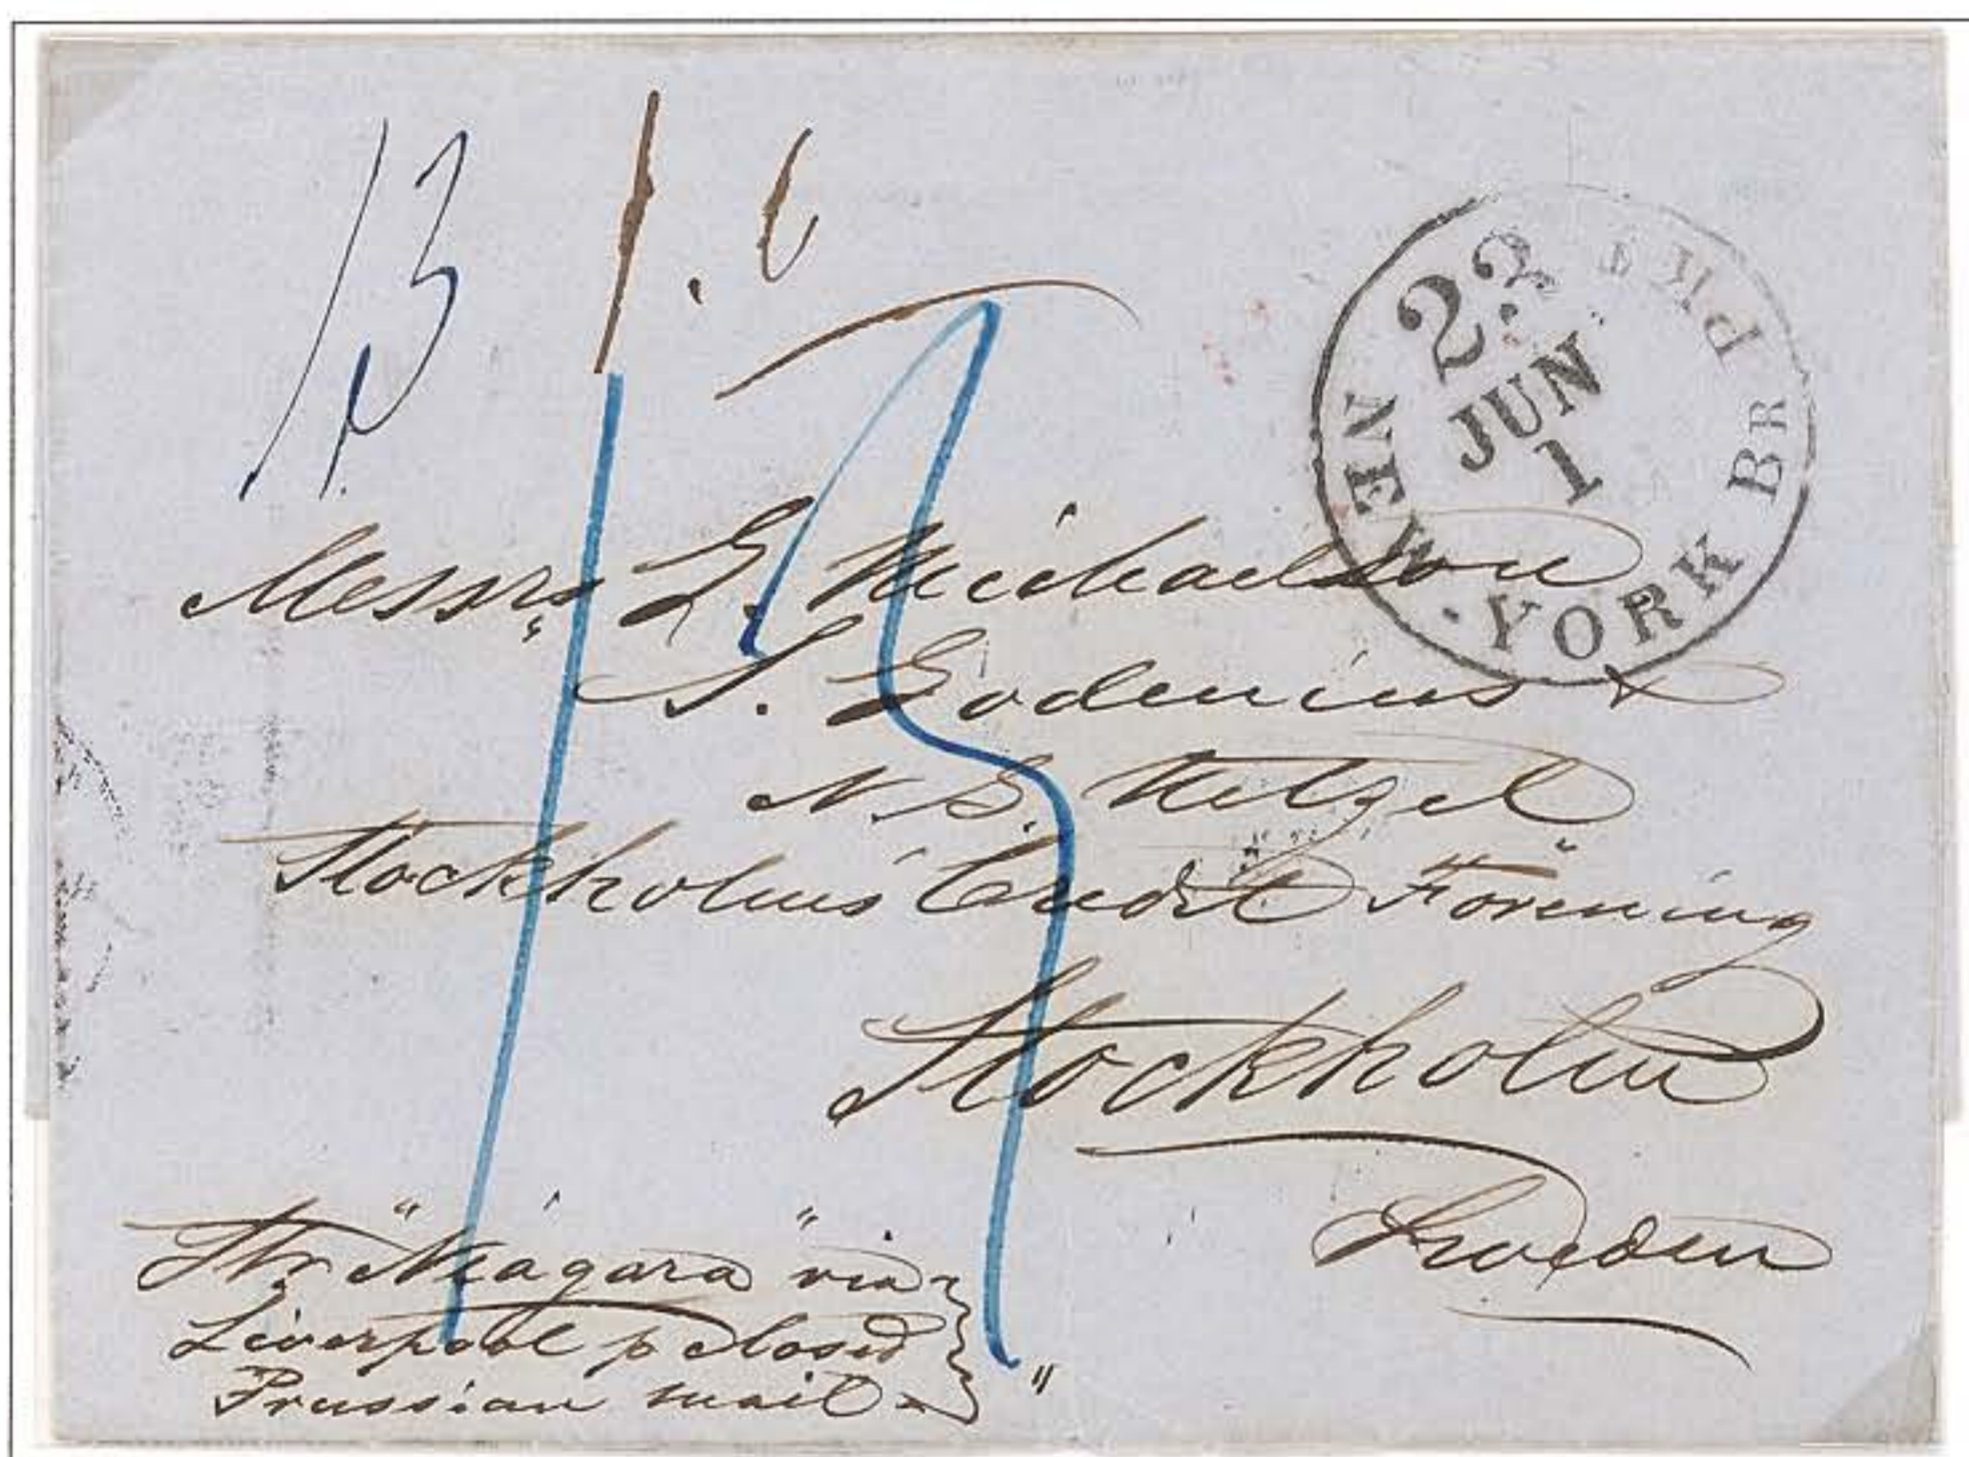 13 1.6
23
JUN
1
NEW-YORK BR PKT
Messrs G. Michaelson
S. Godenius &
N. S.
Stockholms Credit Förening
Stockholm
Sweden
Str "Niagara" via
Liverpool p closed
Prussian mail